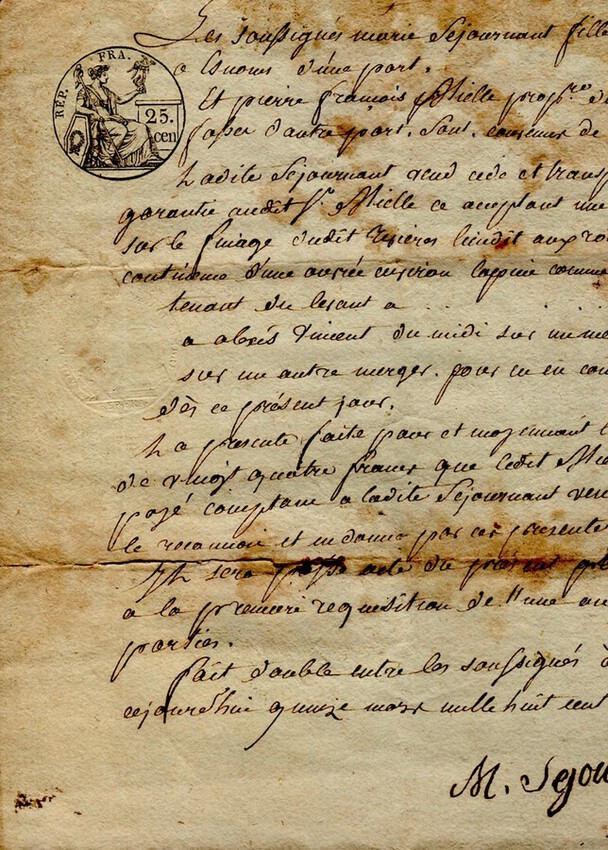 RÉP. FRA.
25.
cen
Les soussignés marie Sejournant fille
d'une part.
Et pierre françois Mielle prop.re d
d'autre part. Sont convenus de
Ladite Sejournant vend cede et transp
garantie audit S.r Mielle ce acceptant une
sur le finage dudit lieudit aux
contineme d'une ouvrée environ comme
tenant du levant a . . . .
a vincent du midi sur un me
sur un autre merger. pour en
dès ce présent jour.
La presente faite pour et moyennant l
de vingt quatre francs que ledit Mi
payé comptant a ladite Sejournant ven
le et en donne par ces presente
Il sera passé acte du présent
a la premiere requisition de l'une
parties.
fait double entre les soussignés
cejourd'hui quinze mars mille huit cent
M. Sejou